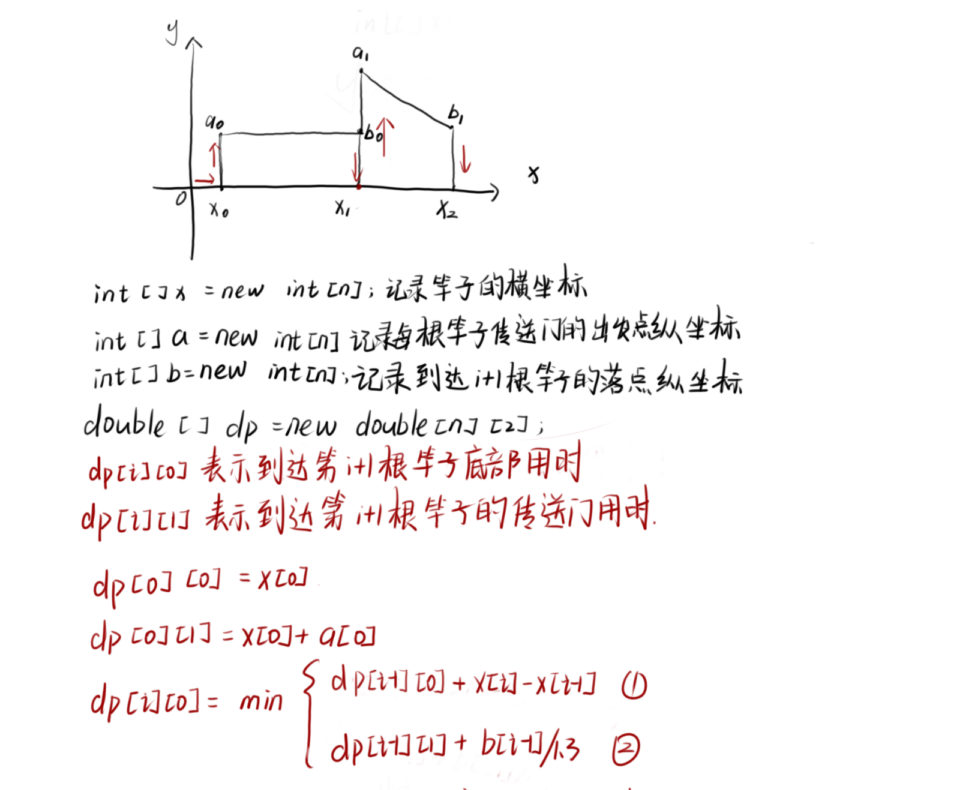 y
a₁
a₀
b₀
b₁
x
0
x₀
x₁
x₂
int []x = new int[n]; 记录竿子的横坐标
int [] a = new int[n] 记录每根竿子传送门的出发点纵坐标
int[] b=new int[n]; 记录到达i+1根竿子的落点纵坐标
double [] dp = new double[n][2];
dp[i][0] 表示到达第i+1根竿子底部用时
dp[i][1] 表示到达第i+1根竿子的传送门用时.
dp[0][0] = x[0]
dp[0][1] = x[0]+ a[0]
dp[i][0] = min { dp[i-1][0] + x[i]-x[i-1] ①
dp[i-1][1] + b[i-1]/1.3 ②